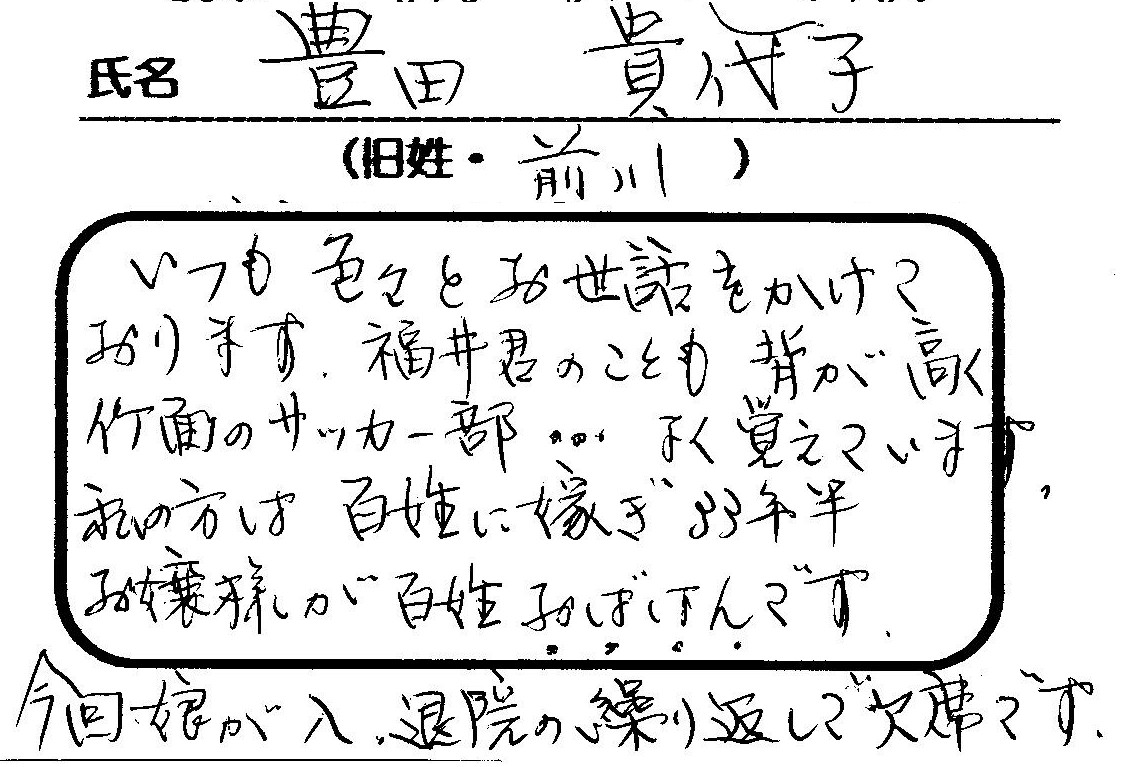 氏名 豊田 貴代子
(旧姓・前川)
いつも色々とお世話をかけて
おります. 福井君のことも背が高く
竹面のサッカー部 … よく覚えています.
私の方は百姓に嫁ぎ33年半
お嬢様が百姓おばけんです.
今回娘が入、退院の繰り返しで欠席です.